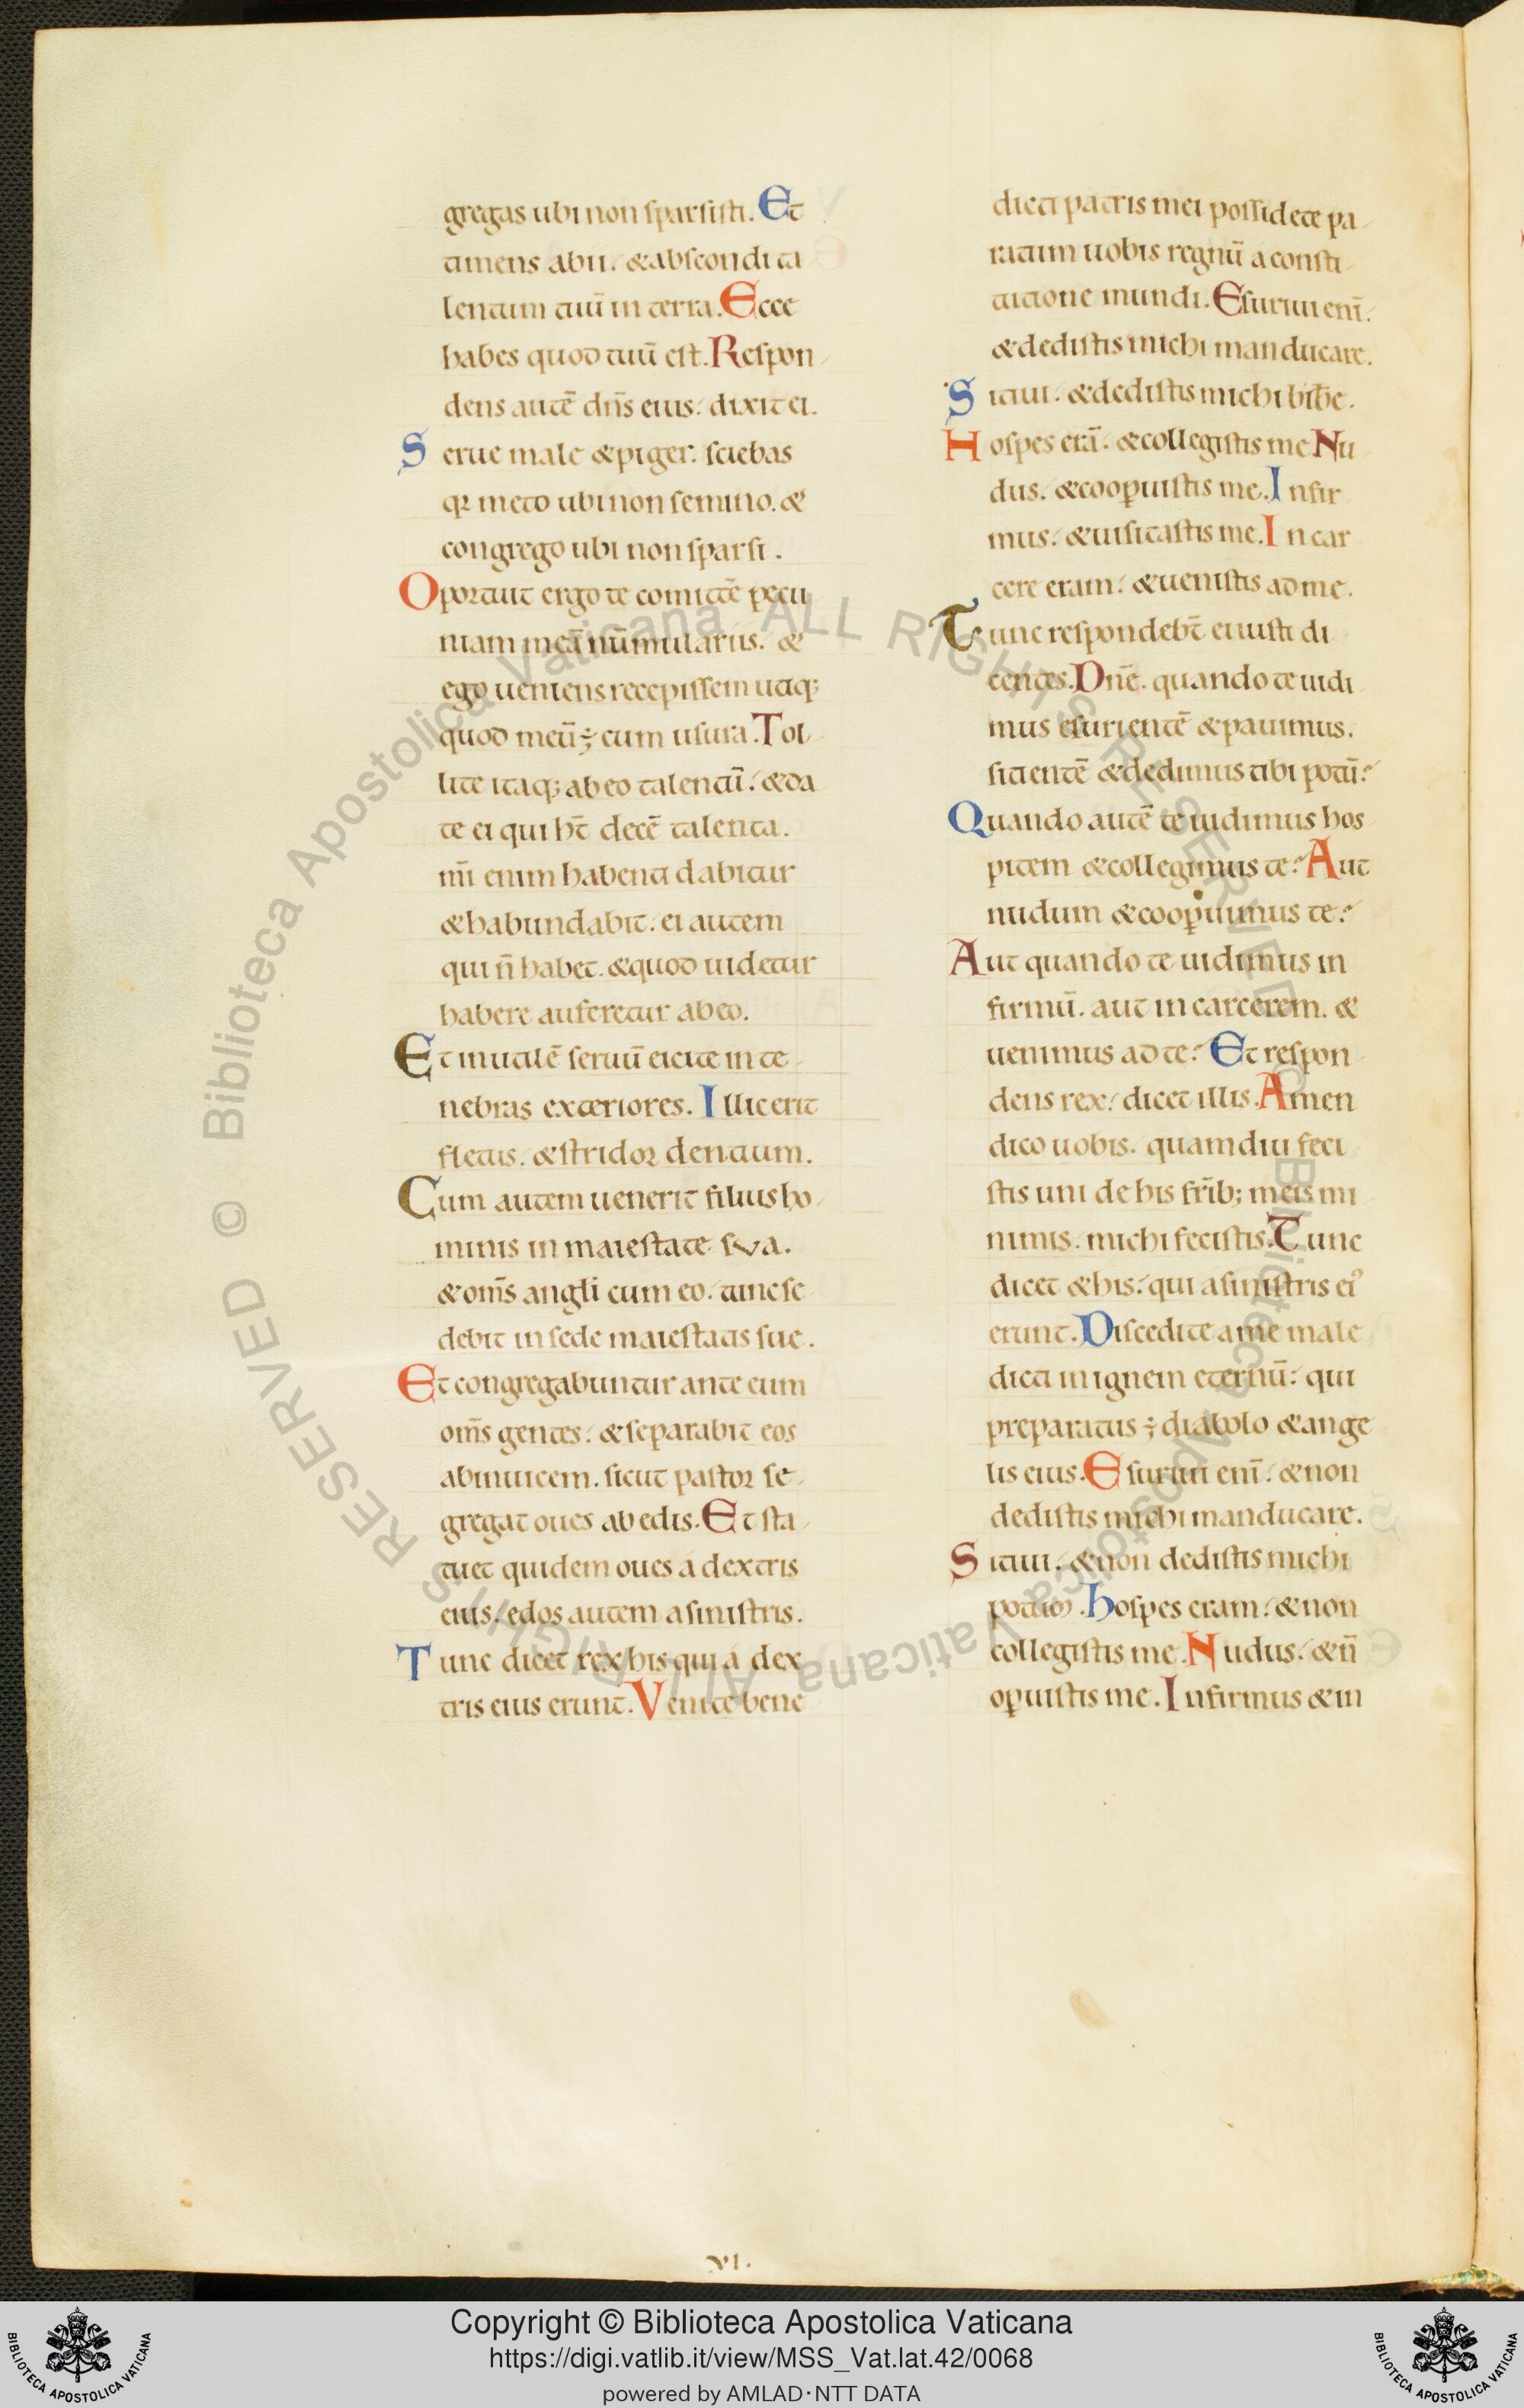 gregas ubi non sparsisti. Et
timens abii. & abscondi ta
lentum tuū in terra. Ecce
habes quod tuū est. Respon
dens autē dn̄s eius. dixit ei.
Serue male & piger. sciebas
qꝛ meto ubi non semino. &
congrego ubi non sparsi.
Oportuit ergo te comittē pecu
niam meā nūmulariis. &
ego ueniens recepissem utiq;
quod meū ÷ cum usura. Tol
lite itaq; ab eo talentū. & da
te ei qui ht̄ decē talenta.
nī enim habenti dabitur
& habundabit. ei autem
qui n̄ habet. & quod uidetur
habere auferetur ab eo.
Et inutilē seruū eicite in te
nebras exteriores. Illic erit
fletus. & stridor dentium.
Cum autem uenerit filius ho
minis in maiestate sua.
& om̄s angl̄i cum eo. tunc se
debit in sede maiestatis sue.
Et congregabuntur ante eum
om̄s gentes. & separabit eos
abinuicem. sicut pastor se
gregat oues ab edis. Et sta
tuet quidem oues a dextris
eius. edos autem a sinistris.
Tunc dicet rex his qui a dex
tris eius erunt. Venite bene
dicti patris mei possidete pa
ratum uobis regnū a consti
tutione mundi. Esuriui enī.
& dedistis michi manducare.
Sitiui. & dedistis michi bibe.
Hospes erā. & collegistis me. Nu
dus. & cooꝑuistis me. Infir
mus. & uisitastis me. In car
cere eram. & uenistis ad me.
Tunc respondebt̄ ei iusti di
centes. Dn̄e. quando te uidi
mus esurientē & pauimus.
sitientē & dedimus tibi potū?
Quando autē te uidimus hos
pitem & collegimus te? Aut
nudum & cooꝑuimus te?
Aut quando te uidimus in
firmū. aut in carcerem. &
uenimus ad te? Et respon
dens rex. dicet illis. Amen
dico uobis. quamdiu feci
stis uni de his fr̄ib; meis mi
nimis. michi fecistis. Tunc
dicet & his. qui a sinistris eiꝰ
erunt. Discedite a me male
dicti in ignem eternū. qui
preparatus ÷ diabolo & ange
lis eius. Esuriui enī. & non
dedistis michi manducare.
Sitiui. & non dedistis michi
potum. Hospes eram. & non
collegistis me. Nudus. & n̄
oꝑuistis me. Infirmus & in
VI.
Copyright © Biblioteca Apostolica Vaticana
https://digi.vatlib.it/view/MSS_Vat.lat.42/0068
powered by AMLAD·NTT DATA
BIBLIOTECA APOSTOLICA VATICANA
BIBLIOTECA APOSTOLICA VATICANA
© Biblioteca Apostolica Vaticana ALL RIGHTS RESERVED © Biblioteca Apostolica Vaticana ALL RIGHTS RESERVED